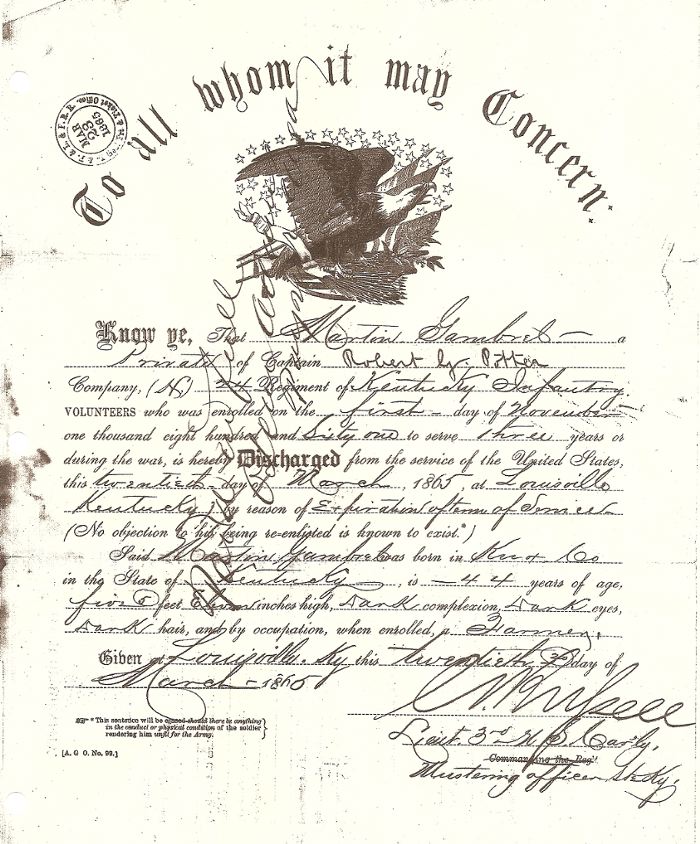 To all whom it may Concern:
MAR
23
1865
Know ye, That Martin Gambrel a
Private of Captain Robert
Company, (N) 24 Regiment of Kentucky Infantry
VOLUNTEERS who was enrolled on the first day of November
one thousand eight hundred and Sixty one to serve three years or
during the war, is hereby Discharged from the service of the United States,
this twentieth day of March, 1865, at Louisville
Kentucky, by reason of Expiration of term of
(No objection to his being re-enlisted is known to exist.*)
Said Martin Gambrel was born in Knox Co
in the State of Kentucky, is 44 years of age,
five feet inches high, Dark complexion, Dark eyes,
Dark hair, and by occupation, when enrolled, a Farmer.
Given at Louisville Ky this twentieth day of
March 1865
* This sentence will be erased should there be anything
in the conduct or physical condition of the soldier
rendering him unfit for the Army.
[A. G. O. No. 99.]
Lieut. 3rd U.S. Cav'ly,
Commanding the Reg't
Mustering officer